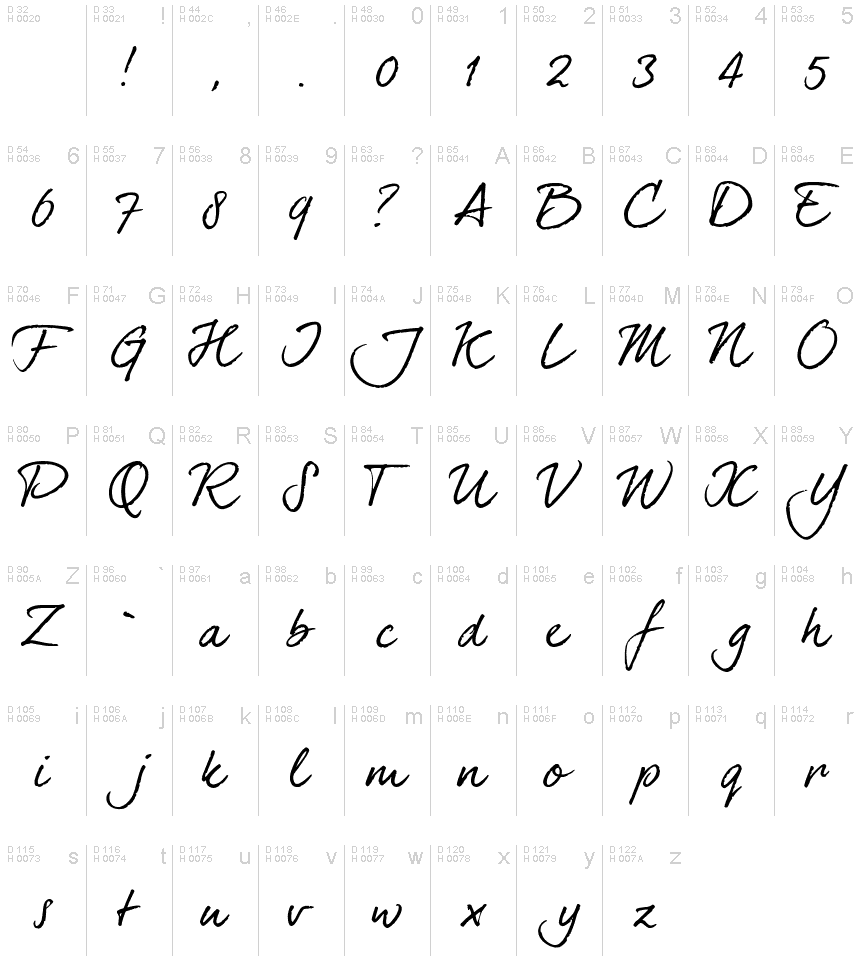 D 32 H 0020 D 33 H 0021 ! D 44 H 002C , D 46 H 002E . D 48 H 0030 0 D 49 H 0031 1 D 50 H 0032 2 D 51 H 0033 3 D 52 H 0034 4 D 53 H 0035 5
! , . 0 1 2 3 4 5
D 54 H 0036 6 D 55 H 0037 7 D 56 H 0038 8 D 57 H 0039 9 D 63 H 003F ? D 65 H 0041 A D 66 H 0042 B D 67 H 0043 C D 68 H 0044 D D 69 H 0045 E
6 7 8 9 ? A B C D E
D 70 H 0046 F D 71 H 0047 G D 72 H 0048 H D 73 H 0049 I D 74 H 004A J D 75 H 004B K D 76 H 004C L D 77 H 004D M D 78 H 004E N D 79 H 004F O
F G H I J K L M N O
D 80 H 0050 P D 81 H 0051 Q D 82 H 0052 R D 83 H 0053 S D 84 H 0054 T D 85 H 0055 U D 86 H 0056 V D 87 H 0057 W D 88 H 0058 X D 89 H 0059 Y
P Q R S T U V W X Y
D 90 H 005A Z D 96 H 0060 ` D 97 H 0061 a D 98 H 0062 b D 99 H 0063 c D 100 H 0064 d D 101 H 0065 e D 102 H 0066 f D 103 H 0067 g D 104 H 0068 h
Z ` a b c d e f g h
D 105 H 0069 i D 106 H 006A j D 107 H 006B k D 108 H 006C l D 109 H 006D m D 110 H 006E n D 111 H 006F o D 112 H 0070 p D 113 H 0071 q D 114 H 0072 r
i j k l m n o p q r
D 115 H 0073 s D 116 H 0074 t D 117 H 0075 u D 118 H 0076 v D 119 H 0077 w D 120 H 0078 x D 121 H 0079 y D 122 H 007A z
s t u v w x y z